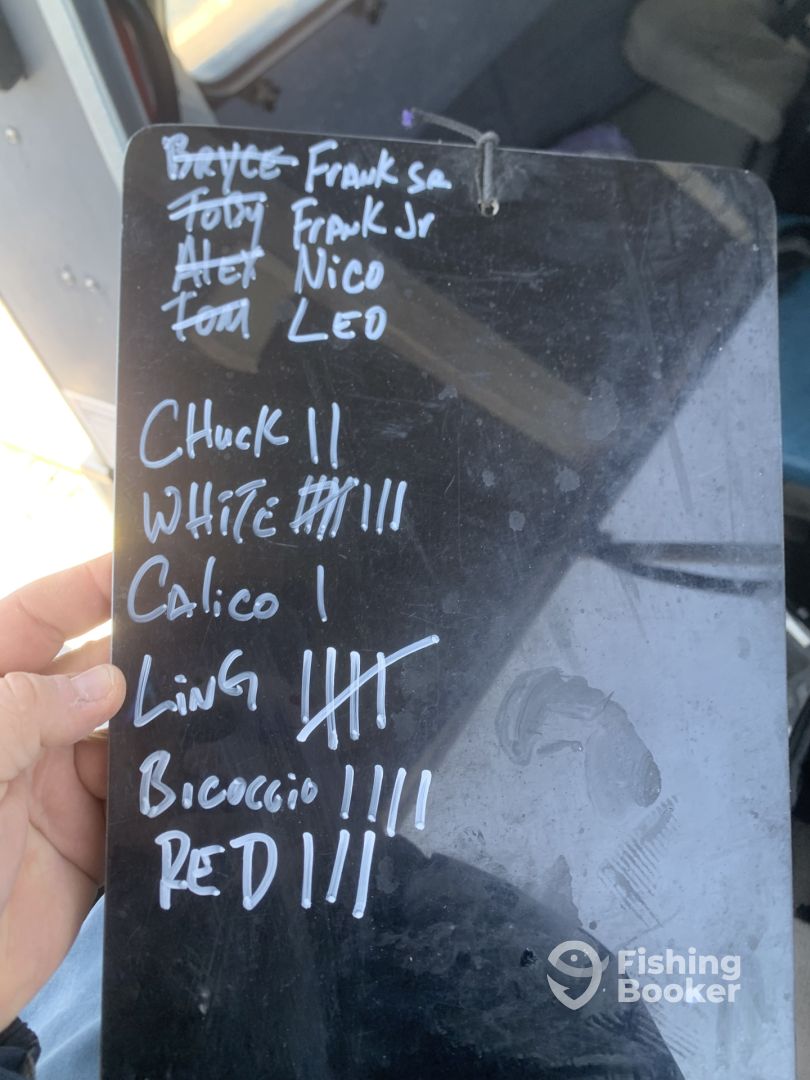 BRYCE FRANK SR
TOBY FRANK Jr
ALEX NICO
TOM LEO
CHucK ||
WHiTE |||| |||
CALiCO |
LiNG ||||
BICOCCIO ||||
RED |||
Fishing
Booker